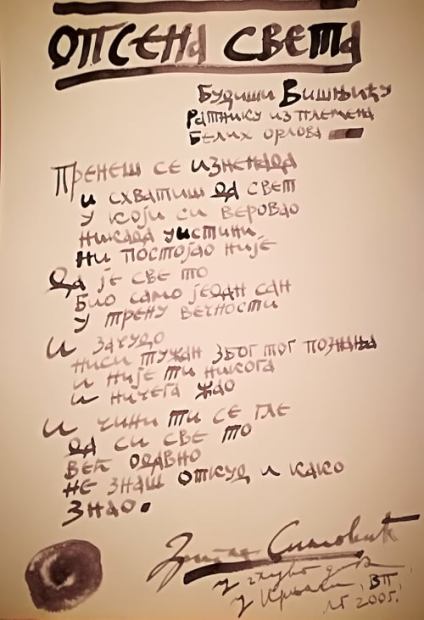 ОПСЕНА СВЕТА
БУДИШИ ВИШЊИЋУ
РАТНИКУ ИЗ ПЛЕМЕНА
БЕЛИХ ОРЛОВА
ПРЕНЕШ СЕ ИЗНЕНАДА
И СХВАТИШ ДА СВЕТ
У КОЈИ СИ ВЕРОВАО
НИКАДА УИСТИНИ
НИ ПОСТОЈАО НИЈЕ
ДА ЈЕ СВЕ ТО
БИЛО САМО ЈЕДАН САН
У ТРЕНУ ВЕЧНОСТИ
И ЗАЧУДО
НИСИ ТУЖАН ЗБОГ ТОГ ПОЗНАЊА
И НИЈЕ ТИ НИКОГА
И НИЧЕГА ЖАО
И ЧИНИ ТИ СЕ ГЛЕ
ДА СИ СВЕ ТО
ВЕЋ ОДАВНО
НЕ ЗНАШ ОТКУД И КАКО
ЗНАО.
у
у
2005.